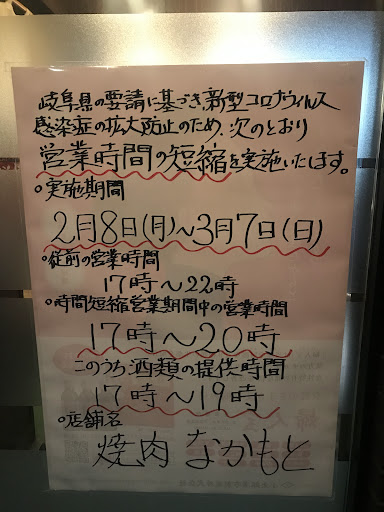 岐阜県の要請に基づき、新型コロナウィルス
感染症の拡大防止のため、次のとおり
営業時間の短縮を実施いたします。
○実施期間
2月8日(月)~3月7日(日)
○従前の営業時間
17時~22時
○時間短縮営業期間中の営業時間
17時~20時
このうち酒類の提供時間
17時~19時
○店舗名
焼肉 なかもと